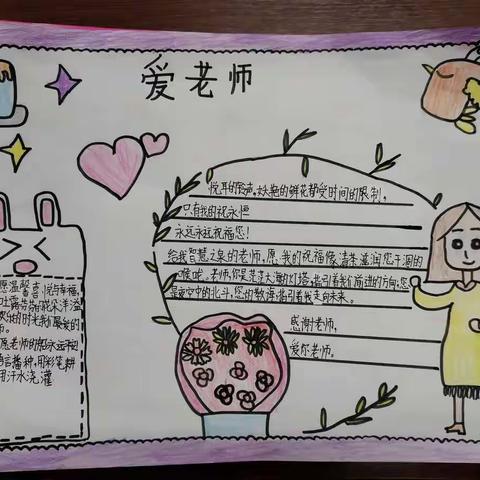 爱老师
悦耳的铃声,妖艳的鲜花都受时间的限制,
只有我的祝永恒
永远永远祝福您!
给我智慧之泉的老师,愿我的祝福像清朱滋润您干涸的
喉咙,老师,你是茫茫大海的灯塔,指引着我们前进的方向;您
是夜空中的北斗,您的教海指引着我走向未来。
感谢老师,
爱尔老师。
愿温馨
悦与幸福,
吐露芬芳的
朵洋溢
欢乐的时光
最美的
愿老师的
永远
言播种,用彩笔耕
用汗水浇灌